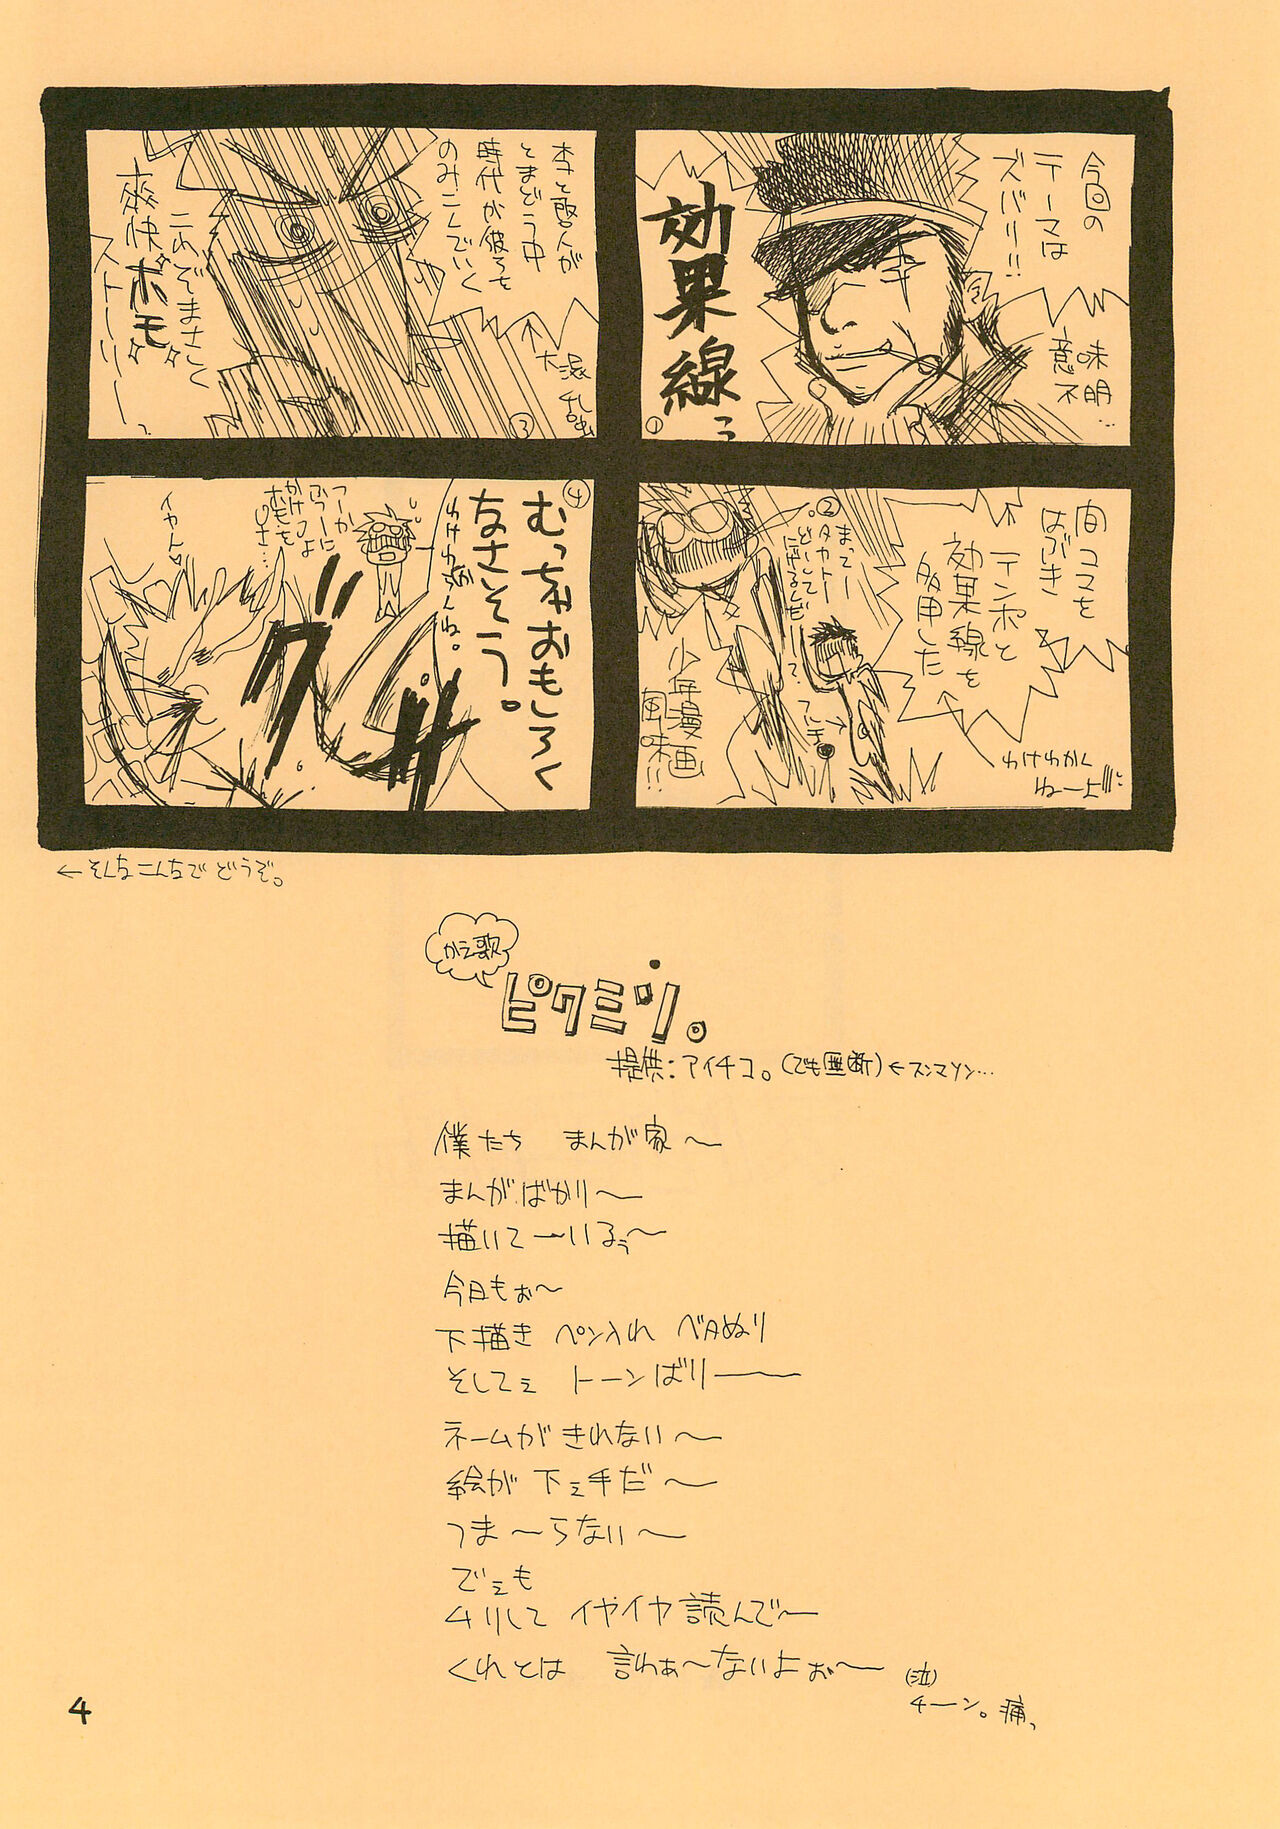 今回の
テーマは
ズバリ!!
効果線っ
意味
不明…
①
間コマを
はぶき
テンポと
効果線を
多用した
わけわかんねーよ!!!
②
まってー
タカトー。
どーして
にげるんだー?
少年漫画
風味!!
時代が彼らを
のみこんでいく
とまどう中
大混乱
③
これぞまさしく
爽快ホモ
ストーリー
④
むっちゃおもしろく
なさそう。
わけわかんね。
つーか
ふつーに
かけっつよ
イヤん
グサ
←そんなこんなでどうぞ。
かえ歌
ピクミン。
提供:アイチコ。(でも無断)←スンマソン…
僕たち まんが家〜
まんがばかり〜
描いてーいるぅ〜
今日もぉ〜
下描き ペン入れ ベタぬり
そしてぇ トーンばりー
ネームがきれない〜
絵が 下ぇ手だ〜
つま〜らない〜
でぇも
ムリして イヤイヤ読んで〜
くれとは 言わぁ〜ないよぉ〜
(泣)
チーン。痛っ
4